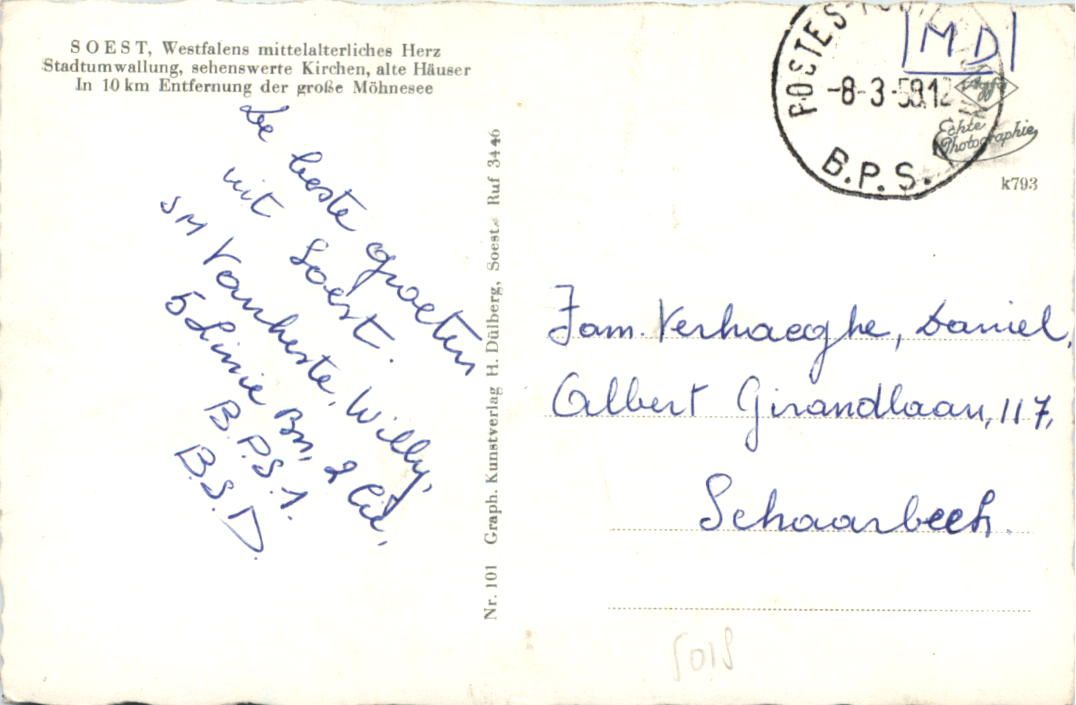 SOEST, Westfalens mittelalterliches Herz
Stadtumwallung, sehenswerte Kirchen, alte Häuser
In 10 km Entfernung der große Möhnesee
De beste groeten
uit Soest.
SM Vanheste, Willy,
5 Linie Bn, 2 Cie,
B.P.S.1.
B.S.D.
Nr. 101 Graph. Kunstverlag H. Dülberg, Soest. Ruf 3446
POSTES-
MD
-8-3-59.12
B.P.S.
Agfa
Echte
Photographie
k793
Fam. Verhaeghe, Daniel,
Albert Girandlaan, 117,
Schaarbeek.
5015